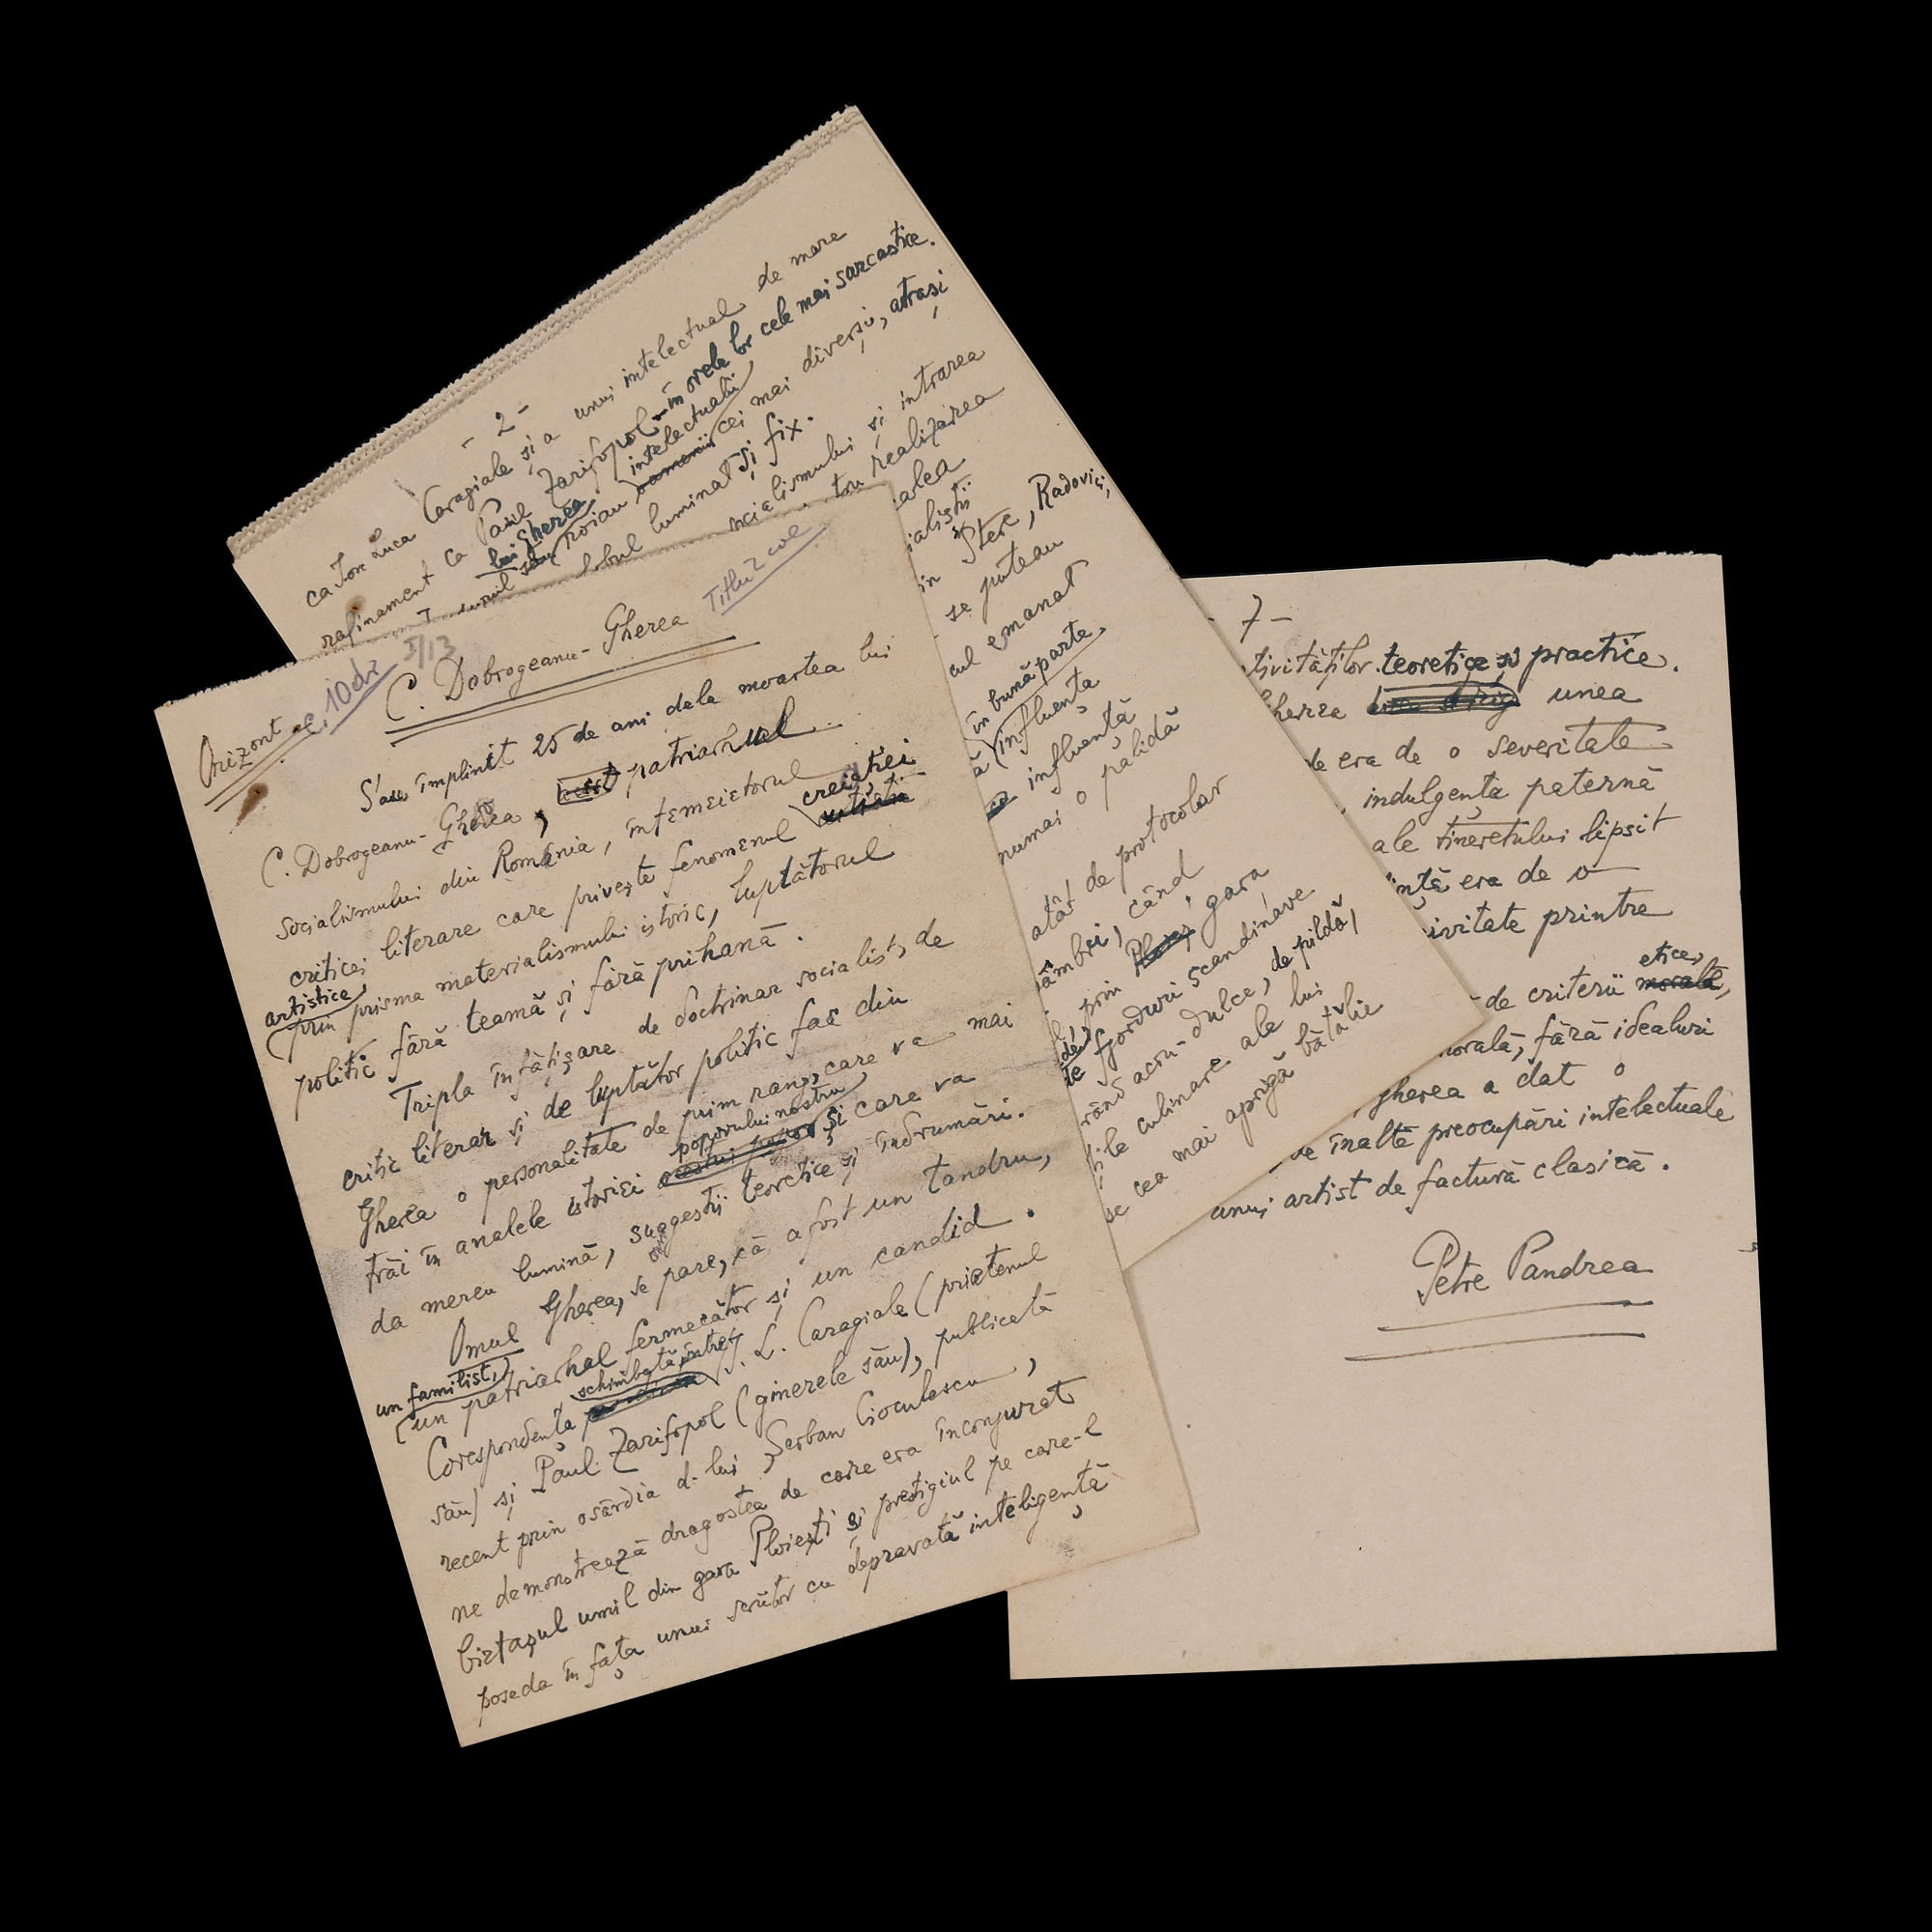 Orizont
10 dr
I/13
Titlu 2 col
C. Dobrogeanu-Gherea
S'au împlinit 25 de ani dela moartea lui
C. Dobrogeanu-Gherea, patriarhul
socialismului din România, întemeietorul
criticei literare care privește fenomenul creiației
artistice
prin prisma materialismului istoric, luptătorul
politic fără teamă și fără prihană.
Tripla înfățișare de doctrinar socialist, de
critic literar și de luptător politic fac din
Gherea o personalitate de prim rang, care va mai
poporului nostru
trăi în analele istoriei și care va
da mereu lumină, sugestii teoretice și îndrumări.
Omul Gherea, se pare, că a fost un tandru,
un familist,
un patriarhal fermecător și un candid.
schimbată între
Corespondența I. L. Caragiale (prietenul
său) și Paul Zarifopol (ginerele său), publicată
recent prin osârdia d-lui Șerban Cioculescu,
ne demonstrează dragostea de care era înconjurat
birtașul umil din gara Ploiești și prestigiul pe care-l
poseda în fața unui scriitor cu depravată inteligență
- 2 -
ca Ion Luca Caragiale și a unui intelectual de mare
rafinament ca Paul Zarifopol în orele lor cele mai sarcastice.
lui Gherea
intelectualii
roiau oamenii cei mai diverși, atrași
luminat și fix.
socialismului și intrarea
realizarea
Stere, Radovici,
se puteau
emanat
în bună parte,
influența
influență
numai o palidă
de protocolar
când
prin gara
fjorduri scandinave
acru-dulce, de pildă,
culinare ale lui
se cea mai aprigă bătălie
- 7 -
tivităților teoretice și practice.
Gherea unea
de era de o severitate
indulgență paternă
ale tineretului lipsit
era de o
ivitate printre
etice,
de criterii morale,
morală, fără idealuri
Gherea a dat o
înalte preocupări intelectuale
unui artist de factură clasică.
Petre Pandrea